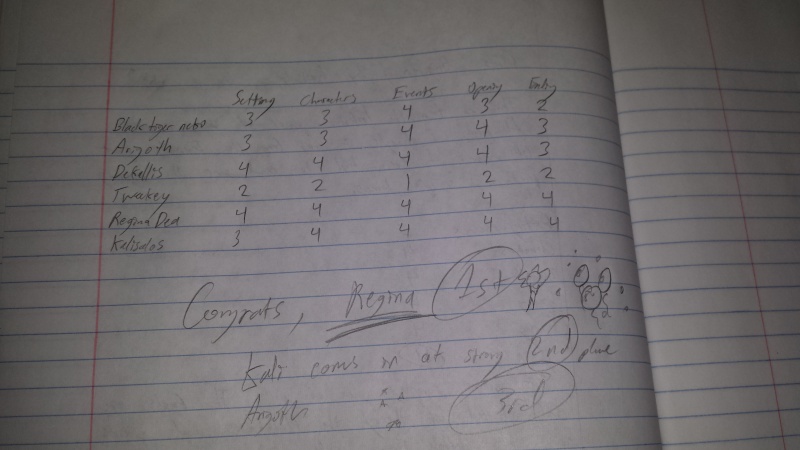 Setting Characters Events Opening Entry
Black tiger 3 3 4 3 2
Arigoth 3 3 4 4 3
Dekallis 4 4 4 4 3
Twackey 2 2 1 2 2
Regina Dea 4 4 4 4 4
Kalisalos 3 4 4 4 4
Congrats, Regina 1st
Kali comes in at strong 2nd place
Arigoth 3rd